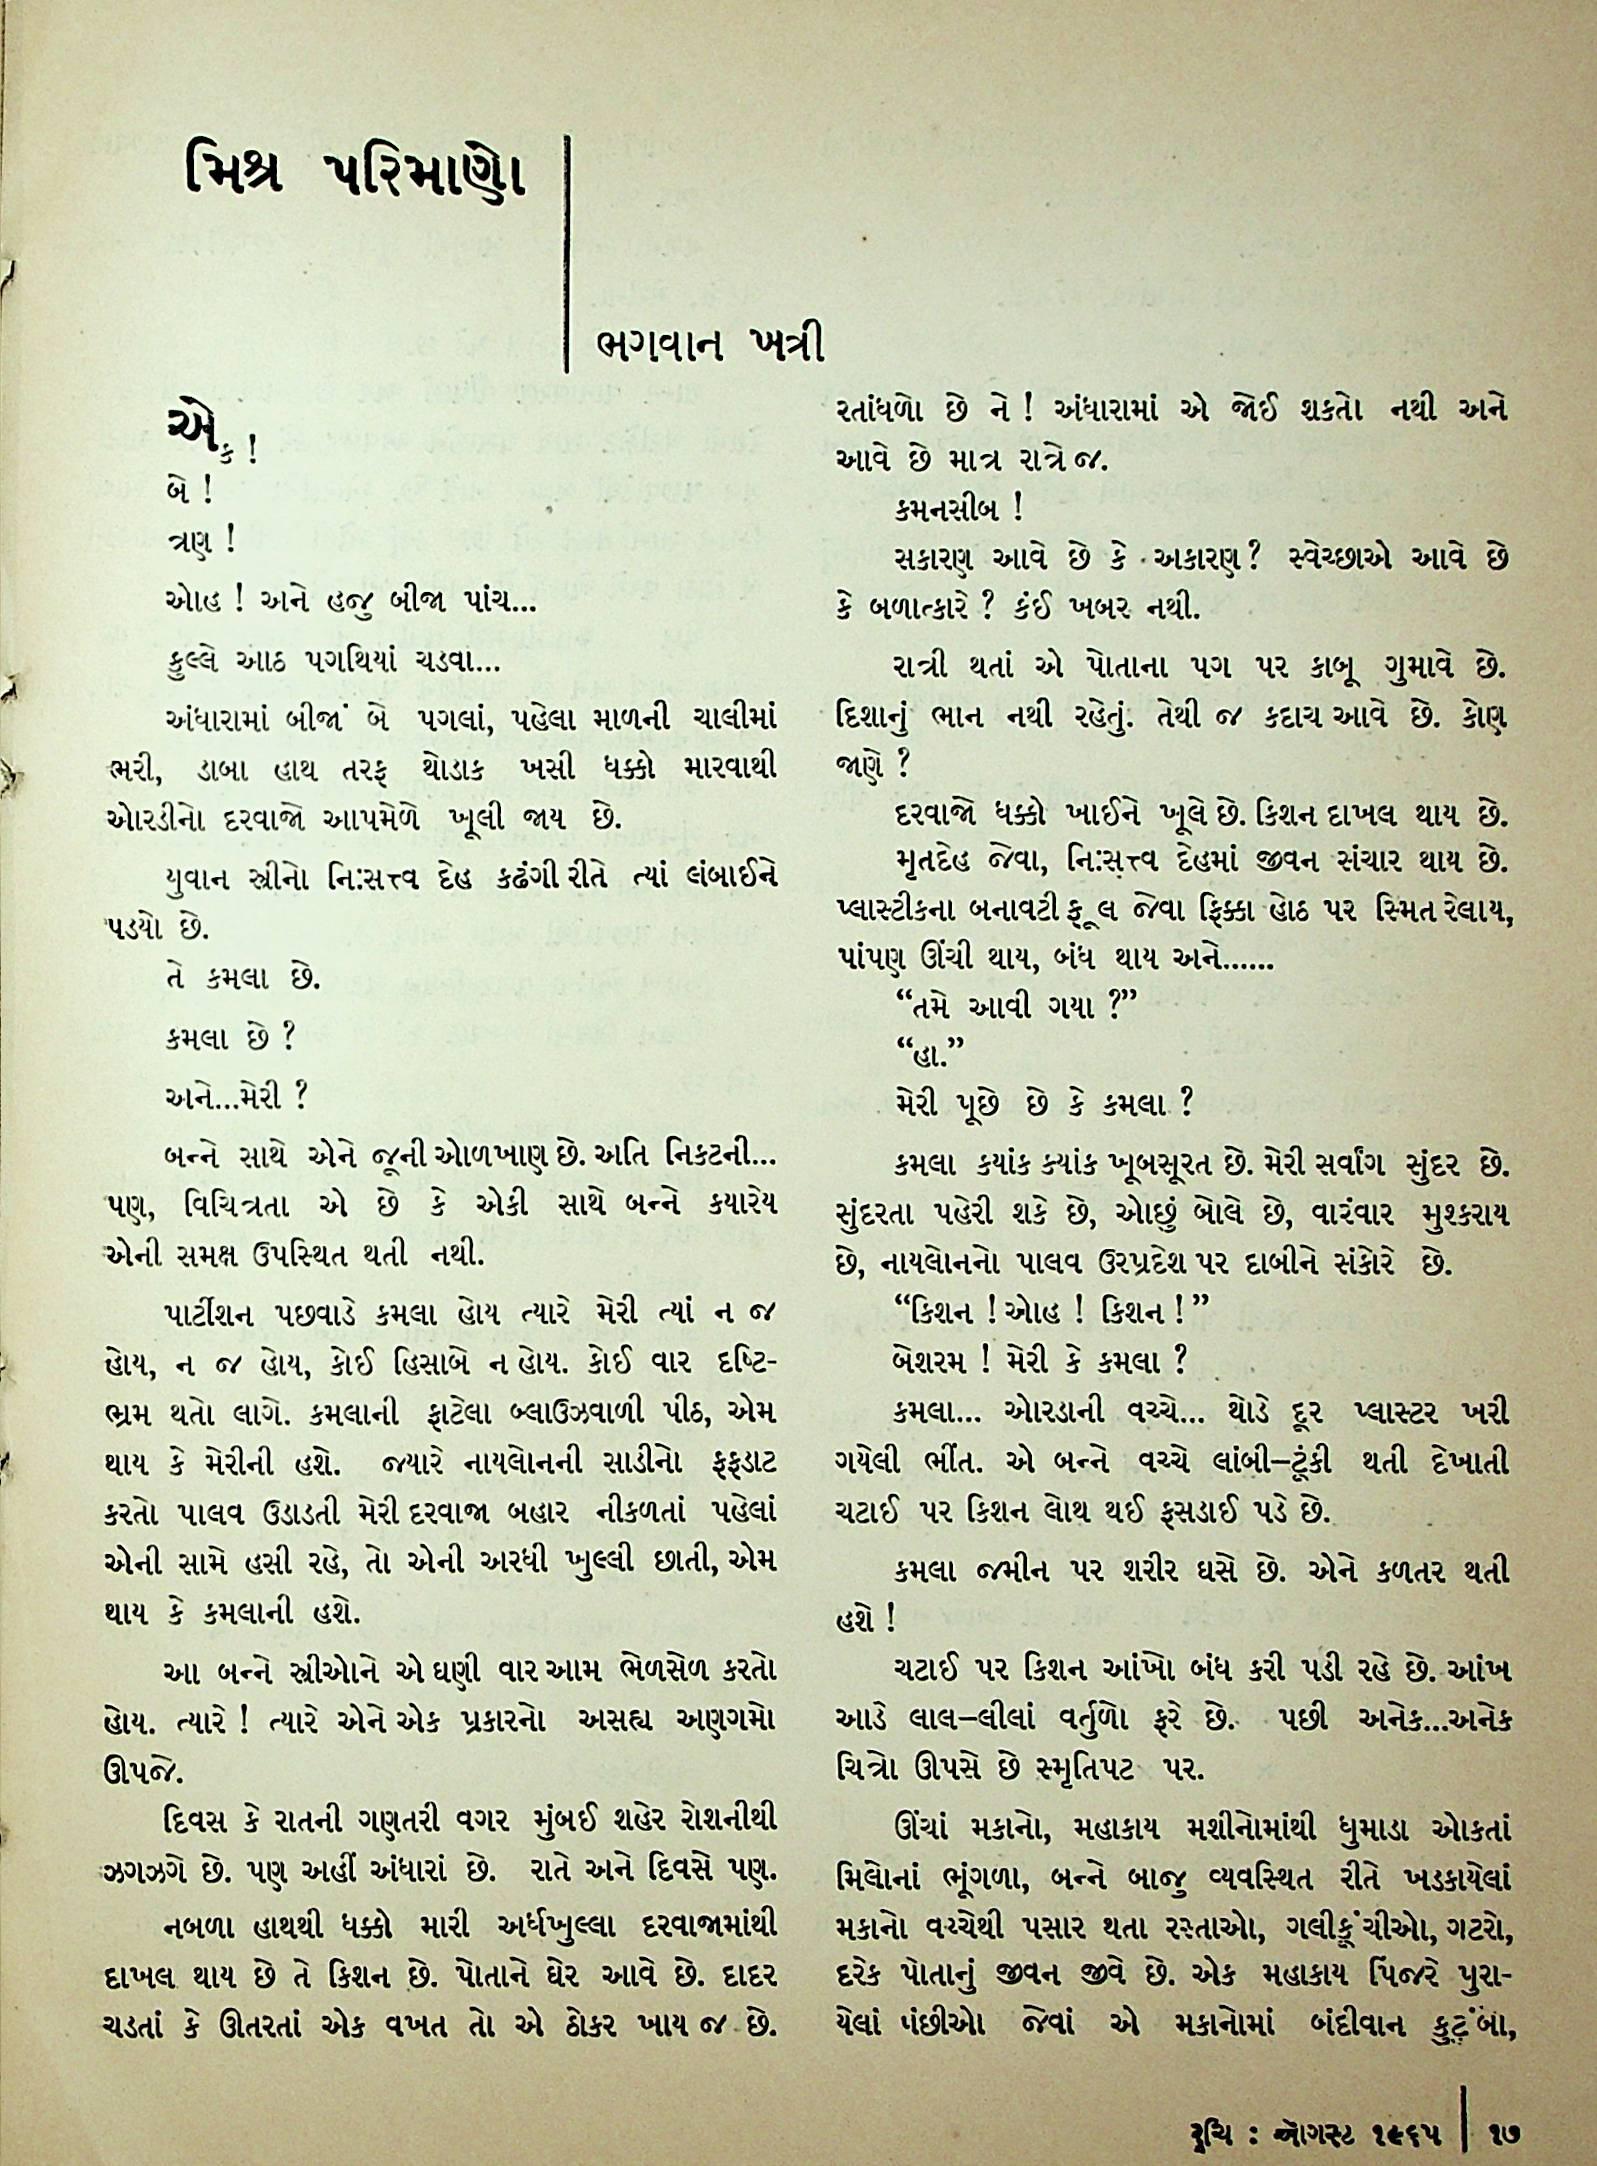 મિશ્ર પરિમાણો
ભગવાન ખત્રી
એક !
બે !
ત્રણ !
ઓહ ! અને હજુ બીજા પાંચ...
કુલ્લે આઠ પગથિયાં ચડવા...
અંધારામાં બીજાં બે પગલાં, પહેલા માળની ચાલીમાં
ભરી, ડાબા હાથ તરફ થોડાક ખસી ધક્કો મારવાથી
ઓરડીનો દરવાજો આપમેળે ખૂલી જાય છે.
યુવાન સ્ત્રીનો નિઃસત્ત્વ દેહ કઢંગી રીતે ત્યાં લંબાઈને
પડયો છે.
તે કમલા છે.
કમલા છે ?
અને...મેરી ?
બન્ને સાથે એને જૂની ઓળખાણ છે. અતિ નિકટની...
પણ, વિચિત્રતા એ છે કે એકી સાથે બન્ને કયારેય
એની સમક્ષ ઉપસ્થિત થતી નથી.
પાર્ટીશન પછવાડે કમલા હોય ત્યારે મેરી ત્યાં ન જ
હોય, ન જ હોય, કોઈ હિસાબે ન હોય. કોઈ વાર દષ્ટિ-
ભ્રમ થતો લાગે. કમલાની ફાટેલા બ્લાઉઝવાળી પીઠ, એમ
થાય કે મેરીની હશે. જ્યારે નાયલોનની સાડીનો ફફડાટ
કરતો પાલવ ઉડાડતી મેરી દરવાજા બહાર નીકળતાં પહેલાં
એની સામે હસી રહે, તો એની અરધી ખુલ્લી છાતી, એમ
થાય કે કમલાની હશે.
આ બન્ને સ્ત્રીઓને એ ઘણી વાર આમ ભેળસેળ કરતો
હોય. ત્યારે ! ત્યારે એને એક પ્રકારનો અસહ્ય અણગમો
ઊપજે.
દિવસ કે રાતની ગણતરી વગર મુંબઈ શહેર રોશનીથી
ઝગઝગે છે. પણ અહીં અંધારાં છે. રાતે અને દિવસે પણ.
નબળા હાથથી ધક્કો મારી અર્ધખુલ્લા દરવાજામાંથી
દાખલ થાય છે તે કિશન છે. પોતાને ઘેર આવે છે. દાદર
ચડતાં કે ઊતરતાં એક વખત તો એ ઠોકર ખાય જ છે.
રતાંધળો છે ને ! અંધારામાં એ જોઈ શકતો નથી અને
આવે છે માત્ર રાત્રે જ.
કમનસીબ !
સકારણ આવે છે કે અકારણ ? સ્વેચ્છાએ આવે છે
કે બળાત્કારે ? કંઈ ખબર નથી.
રાત્રી થતાં એ પોતાના પગ પર કાબૂ ગુમાવે છે.
દિશાનું ભાન નથી રહેતું. તેથી જ કદાચ આવે છે. કોણ
જાણે ?
દરવાજો ધક્કો ખાઈને ખૂલે છે. કિશન દાખલ થાય છે.
મૃતદેહ જેવા, નિઃસત્ત્વ દેહમાં જીવન સંચાર થાય છે.
પ્લાસ્ટીકના બનાવટી ફૂલ જેવા ફિક્કા હોઠ પર સ્મિત રેલાય,
પાંપણ ઊંચી થાય, બંધ થાય અને......
“તમે આવી ગયા ?”
“હા.”
મેરી પૂછે છે કે કમલા ?
કમલા કયાંક ક્યાંક ખૂબસૂરત છે. મેરી સર્વાંગ સુંદર છે.
સુંદરતા પહેરી શકે છે, ઓછું બોલે છે, વારંવાર મુશ્કરાય
છે, નાયલોનનો પાલવ ઉરપ્રદેશ પર દાબીને સંકોરે છે.
“કિશન ! ઓહ ! કિશન !”
બેશરમ ! મેરી કે કમલા ?
કમલા... ઓરડાની વચ્ચે... થોડે દૂર પ્લાસ્ટર ખરી
ગયેલી ભીંત. એ બન્ને વચ્ચે લાંબી–ટૂંકી થતી દેખાતી
ચટાઈ પર કિશન લોથ થઈ ફસડાઈ પડે છે.
કમલા જમીન પર શરીર ઘસે છે. એને કળતર થતી
હશે !
ચટાઈ પર કિશન આંખો બંધ કરી પડી રહે છે. આંખ
આડે લાલ–લીલાં વર્તુળો ફરે છે. પછી અનેક...અનેક
ચિત્રો ઊપસે છે સ્મૃતિપટ પર.
ઊંચાં મકાનો, મહાકાય મશીનોમાંથી ધુમાડા ઓકતાં
મિલોનાં ભૂંગળા, બન્ને બાજુ વ્યવસ્થિત રીતે ખડકાયેલાં
મકાનો વચ્ચેથી પસાર થતા રસ્તાઓ, ગલીકૂંચીઓ, ગટરો,
દરેક પોતાનું જીવન જીવે છે. એક મહાકાય પિંજરે પુરા-
યેલાં પંછીઓ જેવાં એ મકાનોમાં બંદીવાન કુટુંબો,
રુચિ : ઑગસ્ટ ૧૯૬૫ | ૧૭